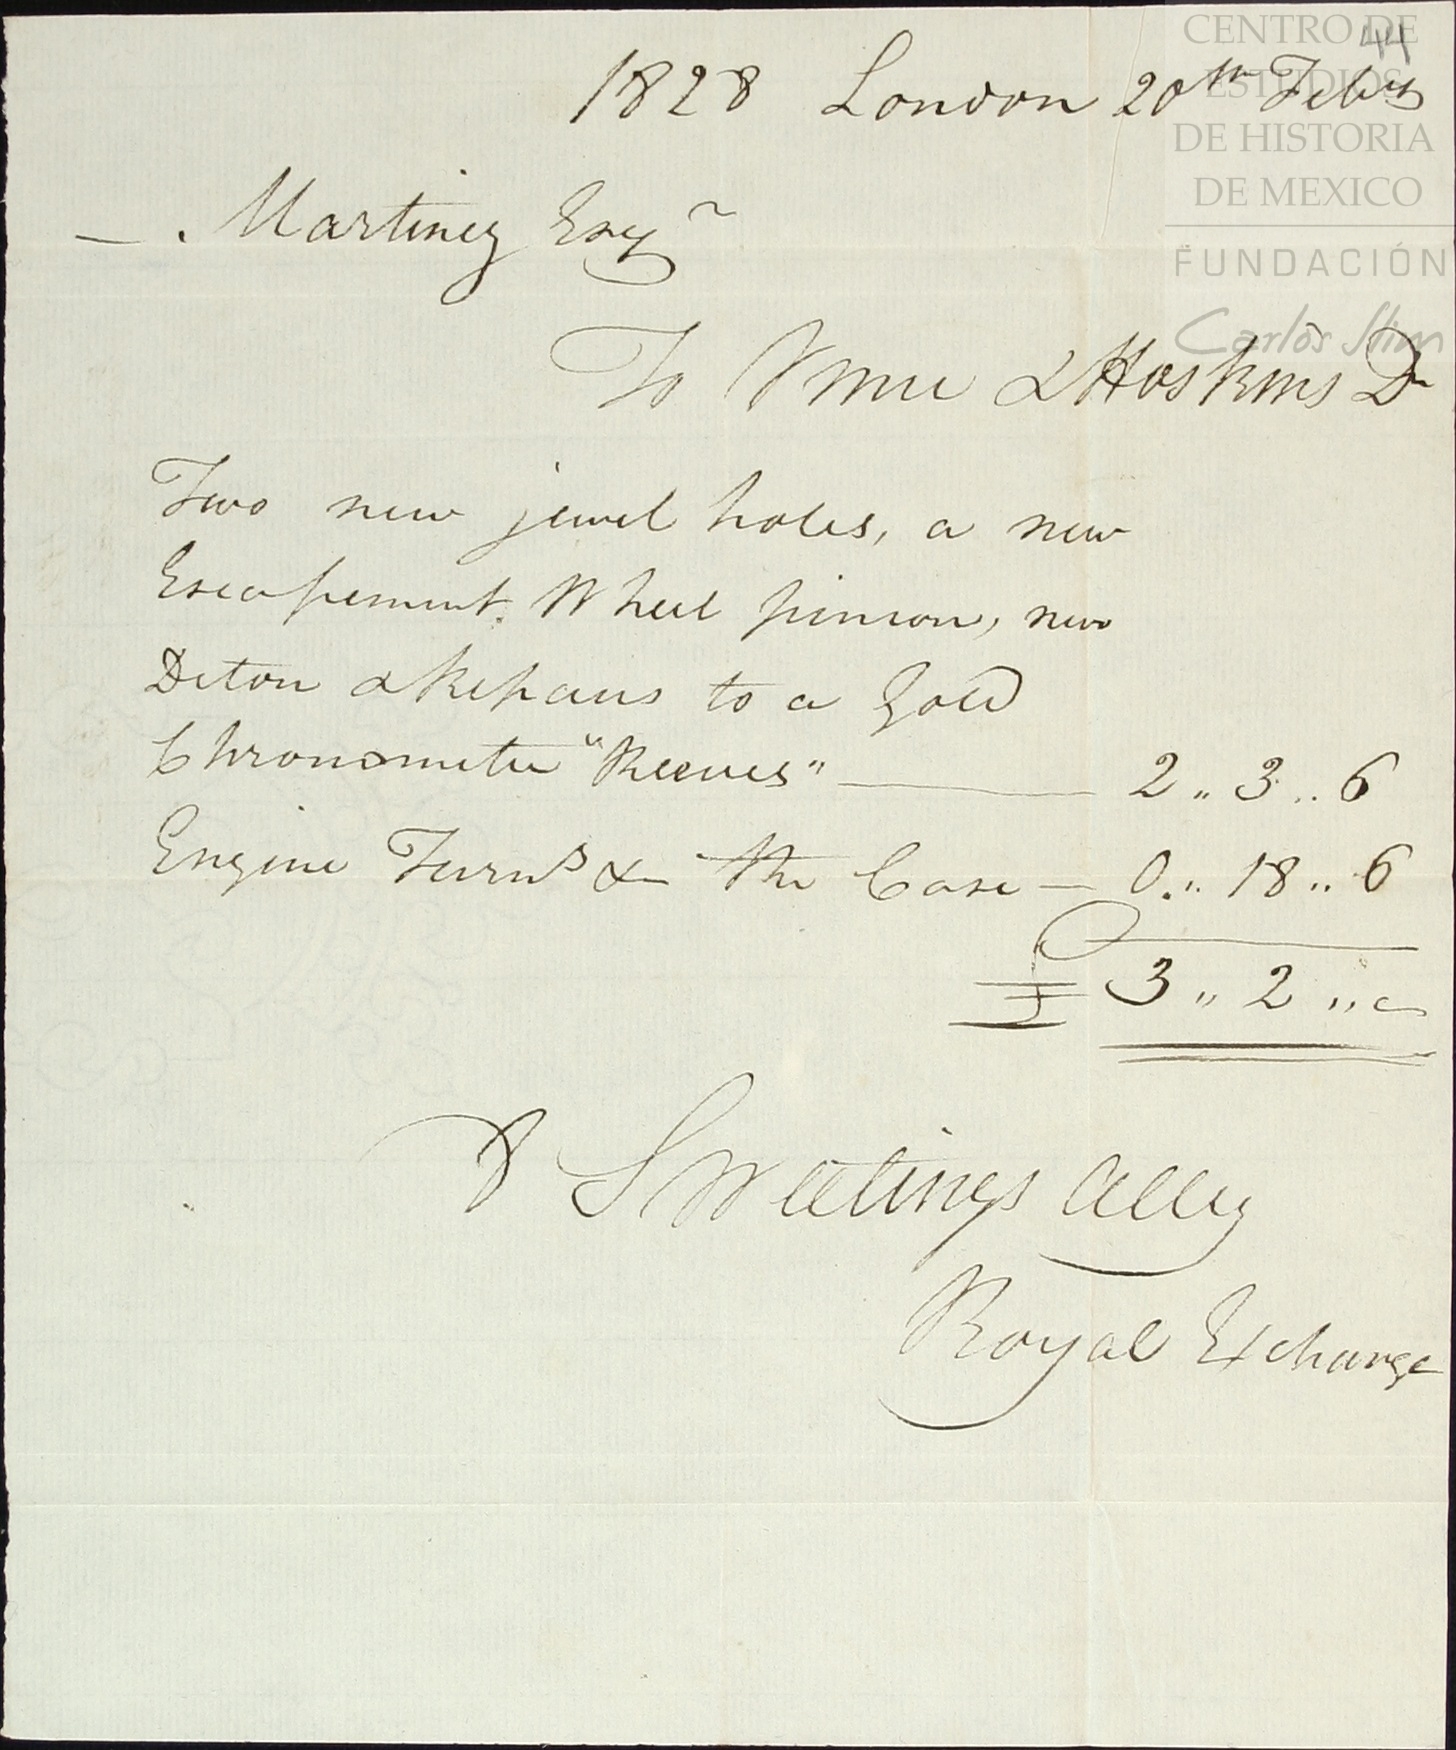 44
CENTRO DE
ESTUDIOS
DE HISTORIA
DE MEXICO
FUNDACIÓN
Carlos Slim
1828 London 20th Feby
— . Martinez Esqr
To & Hoskins Dr
Two new jewel holes, a new
Escapement Wheel pinion, new
Deton & Repairs to a Gold
Chronometer "Reeves" — 2 ,, 3 ,, 6
Engine Turng & the Case — 0 ,, 18 ,, 6
£ 3 ,, 2 ,,
Sweetings Alley
Royal Exchange